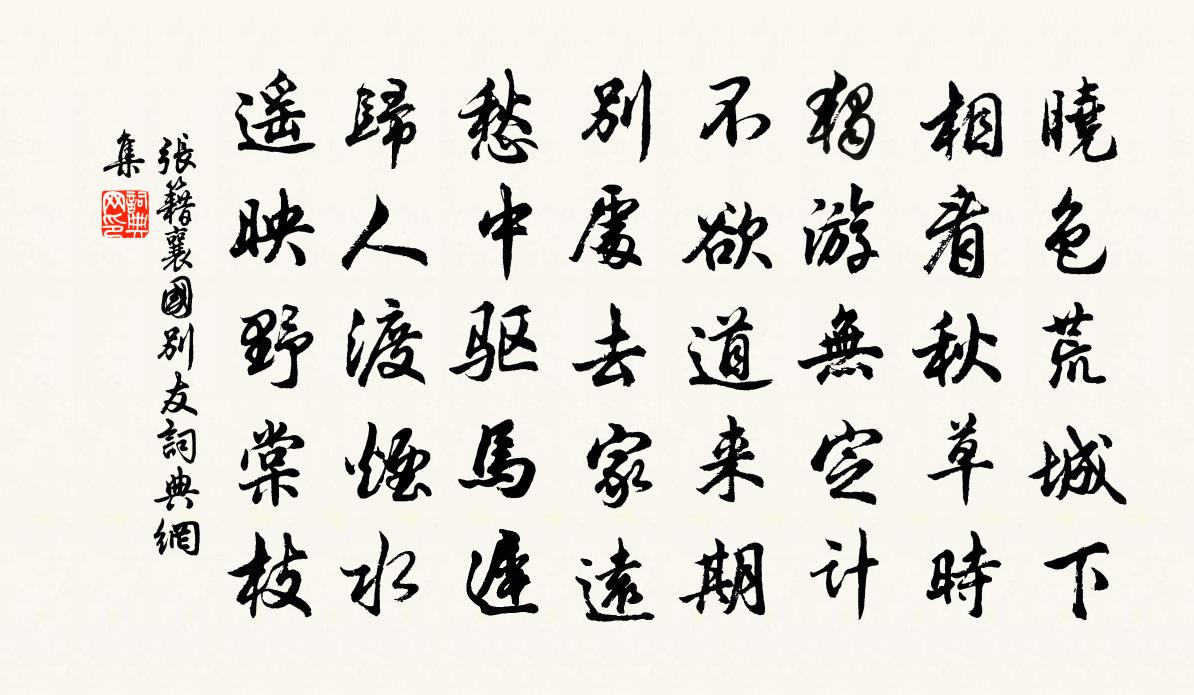 曉色荒城下
相看秋草時
獨游無定計
不欲道来期
別處去家遠
愁中驱馬遲
歸人渡煙水
遥映野棠枝
張籍襄國別友詞典網
集
詞典網印